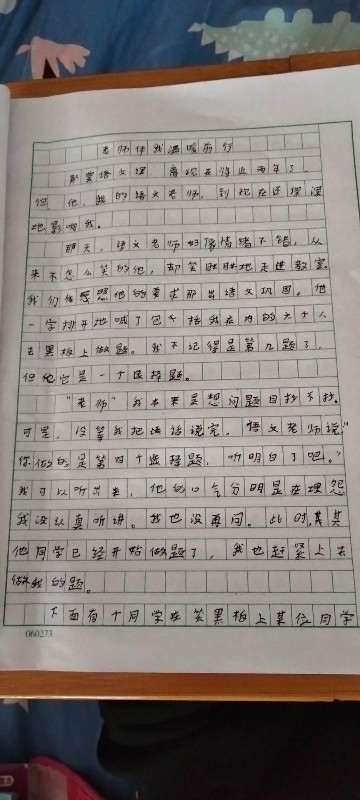 老师伴我温暖前行
那堂语文课，离现在将近两年了。
但他，我的语文老师，到现在还深深
地影响我。
那天，语文老师好像情绪不错，从
来不怎么笑的他，却笑眯眯地走进教室。
我们依照他的要求拿出语文巩固。他
一字排开地喊了包括我在内的六个人
去黑板上做题。我不记得是第几题了，
但他它是一个选择题。
"老师"我本来是想问题目抄不抄。
可是，没等我把话说完，语文老师说"
你做的是第四个选择题，听明白了吧。"
我可以听出来，他的口气分明是在埋怨
我没认真听讲。我也没再问。此时，其
他同学已经开始做题了，我也赶紧上去
做我的题。
下面有个同学在笑黑板上某位同学
060273